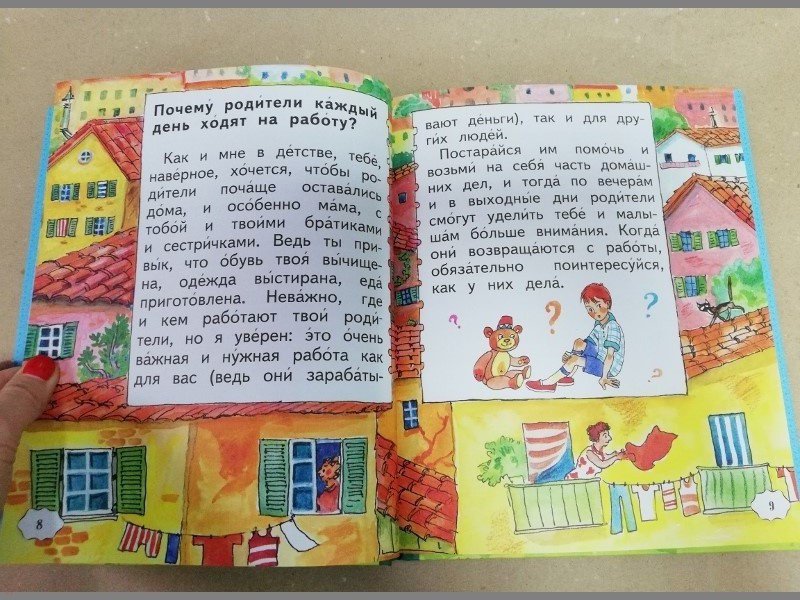 Почему́ роди́тели ка́ждый
день хо́дят на рабо́ту?
Как и мне в де́тстве, тебе́,
наве́рное, хо́чется, что́бы ро-
ди́тели поча́ще остава́лись
до́ма, и осо́бенно ма́ма, с
тобо́й и твои́ми бра́тиками
и сестри́чками. Ведь ты при-
вы́к, что о́бувь твоя́ вы́чище-
на, оде́жда вы́стирана, еда́
пригото́влена. Нева́жно, где
и кем рабо́тают твои́ роди́-
тели, но я уве́рен: э́то о́чень
ва́жная и ну́жная рабо́та как
для вас (ведь они́ зараба́ты-
8
вают де́ньги), так и для дру-
ги́х люде́й.
Постара́йся им помо́чь и
возьми́ на себя́ часть дома́ш-
них дел, и тогда́ по вечера́м
и в выходны́е дни роди́тели
смо́гут удели́ть тебе́ и малы-
ша́м бо́льше внима́ния. Когда́
они́ возвраща́ются с рабо́ты,
обяза́тельно поинтересу́йся,
как у них дела́.
? ? ? ?
9